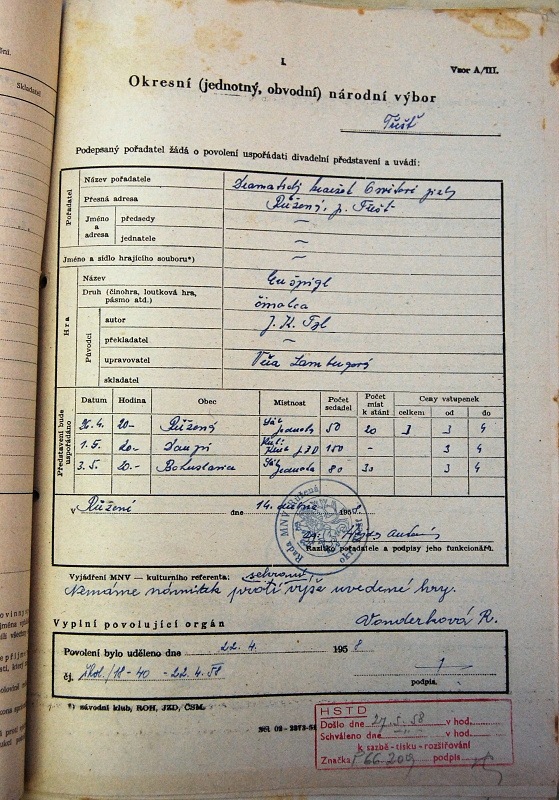 I.
Vzor A/III.
Okresní (jednotný, obvodní) národní výbor
Třešť
Podepsaný pořadatel žádá o povolení uspořádati divadelní představení a uvádí:
Pořadatel
Název pořadatele Dramatický kroužek Osvětové
Přesná adresa Růžená, p. Třešť
Jméno a adresa
předsedy —
jednatele —
Jméno a sídlo hrajícího souboru*) —
Hra
Název Enšpígl
Druh (činohra, loutková hra, pásmo atd.) činohra
Původci
autor J. K. Tyl
překladatel —
upravovatel Věra
skladatel
Představení bude uspořádáno
Datum Hodina Obec Místnost Počet sedadel Počet míst k stání Ceny vstupenek
celkem od do
26.4. 20- Růžená Sál Jednota 50 20 3 3 4
1.5. 20- 150 - 3 4
3.5. 20.- Bohuslavice Sál Jednota 80 30 3 4
V Růžené dne 14. dubna 1958.
Rada MNV Růžená
Razítko pořadatele a podpisy jeho funkcionářů.
Vyjádření MNV – kulturního referenta:
Nemáme námitek proti výše uvedené hry.
Vyplní povolující orgán
Vonderková R.
Povolení bylo uděleno dne 22. 4. 1958
čj. škol./18-40 -22.4.58
podpis.
*) závodní klub, ROH, JZD, ČSM.
HSTD
Došlo dne 27.5.58 v hod.
Schváleno dne v hod.
k sazbě - tisku - rozšiřování
Značka podpis